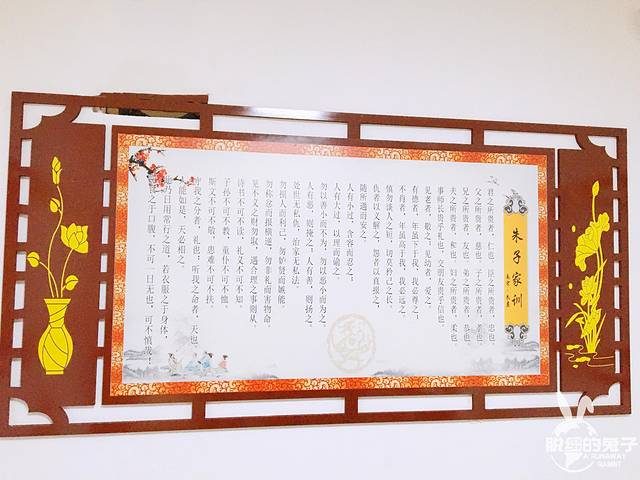 朱子家训
君之所贵者，仁也。臣之所贵者，忠也。
父之所贵者，慈也。子之所贵者，孝也。
兄之所贵者，友也。弟之所贵者，恭也。
夫之所贵者，和也。妇之所贵者，柔也。
事师长贵乎礼也，交朋友贵乎信也。
见老者，敬之；见幼者，爱之。
有德者，年虽下于我，我必尊之；
不肖者，年虽高于我，我必远之。
慎勿谈人之短，切莫矜己之长。
仇者以义解之，怨者以直报之，
随所遇而安之。
人有小过，含容而忍之；
人有大过，以理而谕之。
勿以善小而不为，勿以恶小而为之。
人有恶，则掩之；人有善，则扬之。
处世无私仇，治家无私法。
勿损人而利己，勿妒贤而嫉能。
勿称忿而报横逆，勿非礼而害物命。
见不义之财勿取，遇合理之事则从。
诗书不可不读，礼义不可不知。
子孙不可不教，童仆不可不恤。
斯文不可不敬，患难不可不扶。
守我之分者，礼也；听我之命者，天也。
能如是，天必相之。
乃日用常行之道，若衣服之于身体，
之于口腹，不可一日无也，可不慎哉！
脱缰的兔子
A RUNAWAY
RABBIT